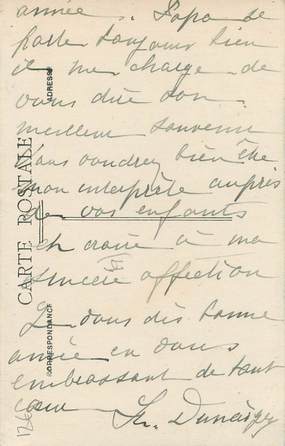 année. Papa se
porte toujours bien
il me charge de
vous dire son
meilleur souvenir
Vous voudrez bien être
mon interprète auprès
de vos enfants
et croire à ma
sincère affection
Je vous dis bonne
année en vous
embrassant de tout
cœur
CARTE POSTALE
CORRESPONDANCE
ADRESSE